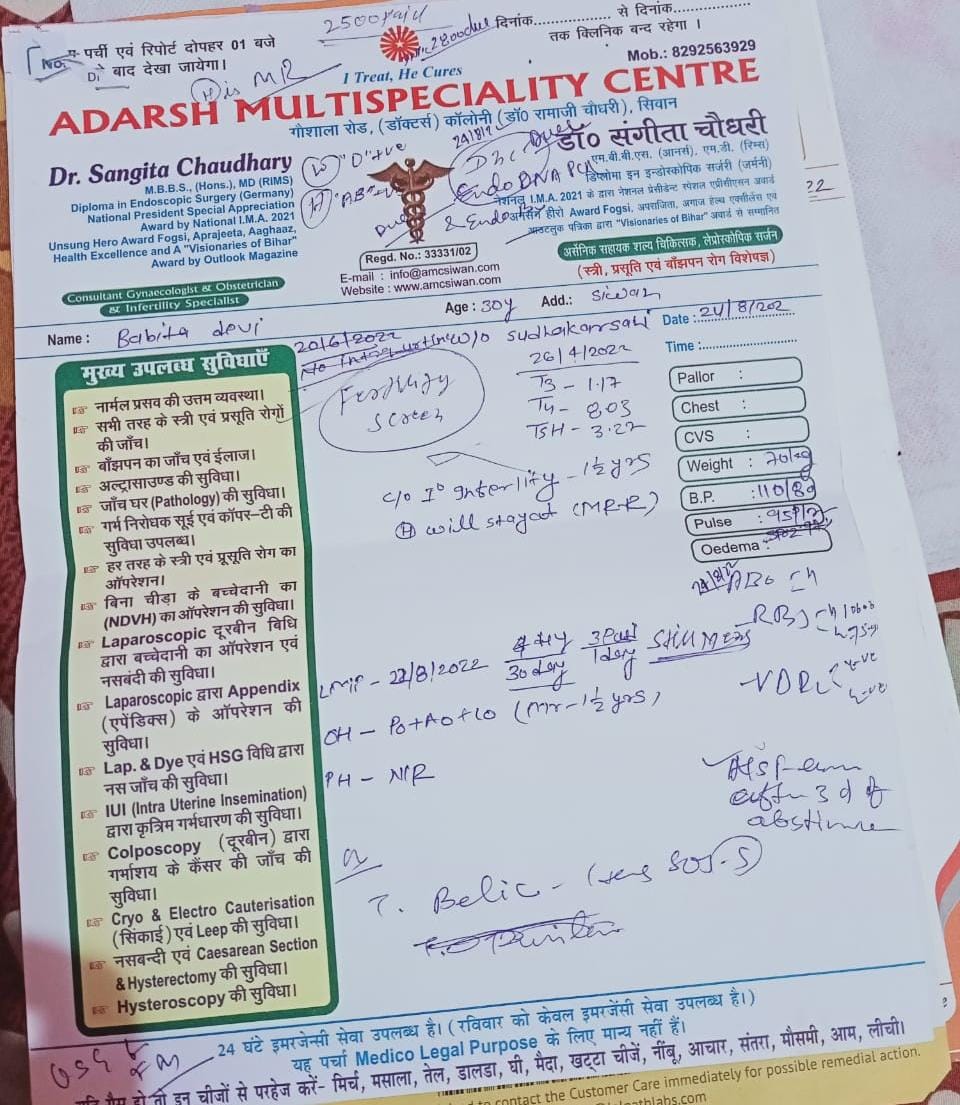 2500 paid
दिनांक................. से दिनांक.................
2800 due
तक क्लिनिक बन्द रहेगा ।
पर्ची एवं रिपोर्ट दोपहर 01 बजे
के बाद देखा जायेगा।
No.
MR
I Treat, He Cures
Mob.: 8292563929
ADARSH MULTISPECIALITY CENTRE
गौशाला रोड, (डॉक्टर्स) कॉलोनी (डॉ० रामाजी चौधरी), सिवान
Dr. Sangita Chaudhary
M.B.B.S., (Hons.), MD (RIMS)
Diploma in Endoscopic Surgery (Germany)
National President Special Appreciation
Award by National I.M.A. 2021
Unsung Hero Award Fogsi, Aprajeeta, Aaghaaz,
Health Excellence and A "Visionaries of Bihar"
Award by Outlook Magazine
Consultant Gynaecologist & Obstetrician
& Infertility Specialist
(W) "O" +ve
(H) "AB"
Due
24/8/2
Due
Endo DNA PCR
& Endo
Regd. No.: 33331/02
E-mail : info@amcsiwan.com
Website : www.amcsiwan.com
डॉ० संगीता चौधरी
एम.बी.बी.एस. (आनर्स), एम.डी. (रिम्स)
डिप्लोमा इन इन्डोस्कोपिक सर्जरी (जर्मनी)
नेशनल I.M.A. 2021 के द्वारा नेशनल प्रेसीडेन्ट स्पेशल एप्रीसीएसन अवार्ड
अनसंग हीरो Award Fogsi, अपराजिता, अगाज हेल्थ एक्सीलेंस एवं
आउटलुक पत्रिका द्वारा "Visionaries of Bihar" अवार्ड से सम्मानित
असैनिक सहायक शल्य चिकित्सक, लेप्रोस्कोपिक सर्जन
(स्त्री, प्रसूति एवं बाँझपन रोग विशेषज्ञ)
22
Name : Babita devi
Age : 30y
Add.: Siwan
W/o Sudhakar sah
Date : 24/8/202
Time :
20/6/2022
Fertility
Screen
26/4/2022
T3 - 1.17
T4 - 8.03
TSH - 3.22
Pallor :
Chest :
CVS :
Weight : 70kg
B.P. : 110/80
Pulse : 95
Oedema :
मुख्य उपलब्ध सुविधाएँ
नार्मल प्रसव की उत्तम व्यवस्था।
सभी तरह के स्त्री एवं प्रसूति रोगों
की जाँच।
बाँझपन का जाँच एवं ईलाज।
अल्ट्रासाउण्ड की सुविधा।
जाँच घर (Pathology) की सुविधा।
गर्भ निरोधक सूई एवं कॉपर-टी की
सुविधा उपलब्ध।
हर तरह के स्त्री एवं प्रसूति रोग का
ऑपरेशन।
बिना चीड़ा के बच्चेदानी का
(NDVH) का ऑपरेशन की सुविधा।
Laparoscopic दूरबीन विधि
द्वारा बच्चेदानी का ऑपरेशन एवं
नसबंदी की सुविधा।
Laparoscopic द्वारा Appendix
(एपेंडिक्स) के ऑपरेशन की
सुविधा।
Lap. & Dye एवं HSG विधि द्वारा
नस जाँच की सुविधा।
IUI (Intra Uterine Insemination)
द्वारा कृत्रिम गर्भधारण की सुविधा।
Colposcopy (दूरबीन) द्वारा
गर्भाशय के कैंसर की जाँच की
सुविधा।
Cryo & Electro Cauterisation
(सिंकाई) एवं Leep की सुविधा।
नसबन्दी एवं Caesarean Section
& Hysterectomy की सुविधा।
Hysteroscopy की सुविधा।
c/o I° Infertility - 1½ yrs
(H) will stay out (MR-R)
ABO
RBS
VDRL -ve
-ve
LMP - 22/8/2022
30 day
1 day
Still Mens
OH - P0+A0+L0 (Mr - 1½ yrs)
PH - N/R
after 3 d of
abstinence
T. Belic -
24 घंटे इमरजेन्सी सेवा उपलब्ध है। (रविवार को केवल इमरजेंसी सेवा उपलब्ध है।)
यह पर्चा Medico Legal Purpose के लिए मान्य नहीं हैं।
हो तो इन चीजों से परहेज करें- मिर्च, मसाला, तेल, डालडा, घी, मैदा, खट्टा चीजें, नींबू, आचार, संतरा, मौसमी, आम, लीची।
contact the Customer Care immediately for possible remedial action.